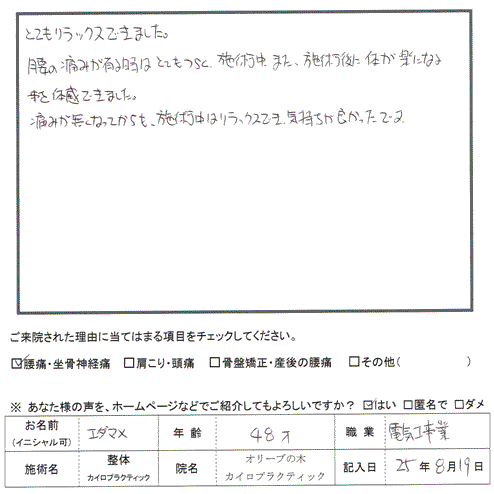 とてもリラックスできました。
腰の痛みが有る時はとてもつらく、施術中また、施術後に体が楽になる
事を体感できました。
痛みが無くなってからも、施術中はリラックスでき、気持ちが良かったです。
ご来院された理由に当てはまる項目をチェックしてください。
☑腰痛・坐骨神経痛 □肩こり・頭痛 □骨盤矯正・産後の腰痛 □その他( )
※ あなた様の声を、ホームページなどでご紹介してもよろしいですか? ☑はい □匿名で □ダメ
お名前 (イニシャル可) エダマメ 年 齢 48才 職 業 電気工事業
施術名 整体 カイロプラクティック 院名 オリーブの木 カイロプラクティック 記入日 25年8月19日